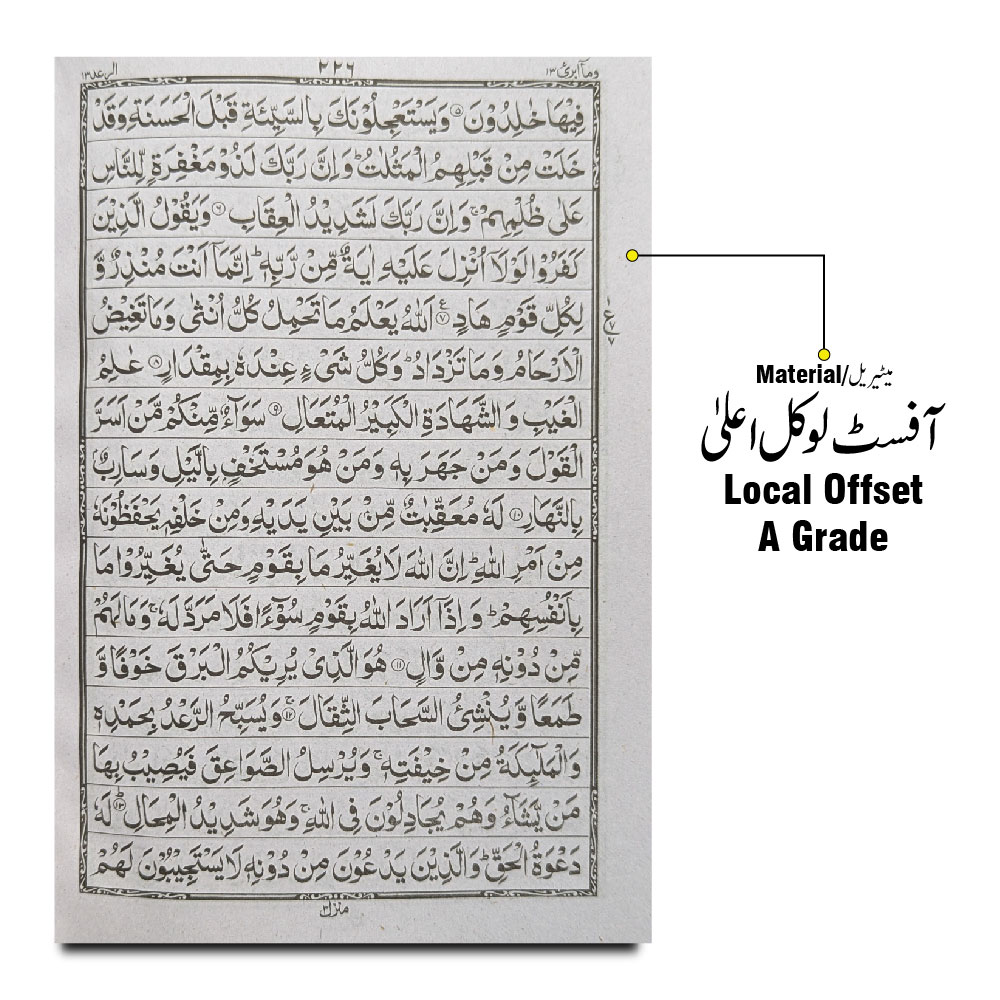 وماۤ ابرئ ۱۳
۲۲۶
الرعد ۱۳
فِيْهَا خٰلِدُوْنَ ۝۵ وَيَسْتَعْجِلُوْنَكَ بِالسَّيِّئَةِ قَبْلَ الْحَسَنَةِ وَقَدْ
خَلَتْ مِنْ قَبْلِهِمُ الْمَثُلٰتُ ؕ وَاِنَّ رَبَّكَ لَذُوْ مَغْفِرَةٍ لِّلنَّاسِ
عَلٰى ظُلْمِهِمْ ۚ وَاِنَّ رَبَّكَ لَشَدِيْدُ الْعِقَابِ ۝۶ وَيَقُوْلُ الَّذِيْنَ
كَفَرُوْا لَوْلَاۤ اُنْزِلَ عَلَيْهِ اٰيَةٌ مِّنْ رَّبِّهٖ ؕ اِنَّمَاۤ اَنْتَ مُنْذِرٌ وَّ
لِكُلِّ قَوْمٍ هَادٍ ۝۷ ع اَللّٰهُ يَعْلَمُ مَا تَحْمِلُ كُلُّ اُنْثٰى وَمَا تَغِيْضُ
ع ۷ ۷
الْاَرْحَامُ وَمَا تَزْدَادُ ؕ وَكُلُّ شَىْءٍ عِنْدَهٗ بِمِقْدَارٍ ۝۸ عٰلِمُ
الْغَيْبِ وَالشَّهَادَةِ الْكَبِيْرُ الْمُتَعَالِ ۝۹ سَوَآءٌ مِّنْكُمْ مَّنْ اَسَرَّ
الْقَوْلَ وَمَنْ جَهَرَ بِهٖ وَمَنْ هُوَ مُسْتَخْفٍۭ بِالَّيْلِ وَسَارِبٌۢ
بِالنَّهَارِ ۝۱۰ لَهٗ مُعَقِّبٰتٌ مِّنْۢ بَيْنِ يَدَيْهِ وَمِنْ خَلْفِهٖ يَحْفَظُوْنَهٗ
مِنْ اَمْرِ اللّٰهِ ؕ اِنَّ اللّٰهَ لَا يُغَيِّرُ مَا بِقَوْمٍ حَتّٰى يُغَيِّرُوْا مَا
بِاَنْفُسِهِمْ ؕ وَاِذَاۤ اَرَادَ اللّٰهُ بِقَوْمٍ سُوْٓءًا فَلَا مَرَدَّ لَهٗ ۚ وَمَا لَهُمْ
مِّنْ دُوْنِهٖ مِنْ وَّالٍ ۝۱۱ هُوَ الَّذِىْ يُرِيْكُمُ الْبَرْقَ خَوْفًا وَّ
طَمَعًا وَّيُنْشِئُ السَّحَابَ الثِّقَالَ ۝۱۲ ۚ وَيُسَبِّحُ الرَّعْدُ بِحَمْدِهٖ
وَالْمَلٰٓئِكَةُ مِنْ خِيْفَتِهٖ ۚ وَيُرْسِلُ الصَّوَاعِقَ فَيُصِيْبُ بِهَا
مَنْ يَّشَآءُ وَهُمْ يُجَادِلُوْنَ فِى اللّٰهِ ۚ وَهُوَ شَدِيْدُ الْمِحَالِ ۝۱۳ ؕ لَهٗ
دَعْوَةُ الْحَقِّ ؕ وَالَّذِيْنَ يَدْعُوْنَ مِنْ دُوْنِهٖ لَا يَسْتَجِيْبُوْنَ لَهُمْ
منزل ۳
Material/میٹیریل
آفسٹ لوکل اعلیٰ
Local Offset
A Grade